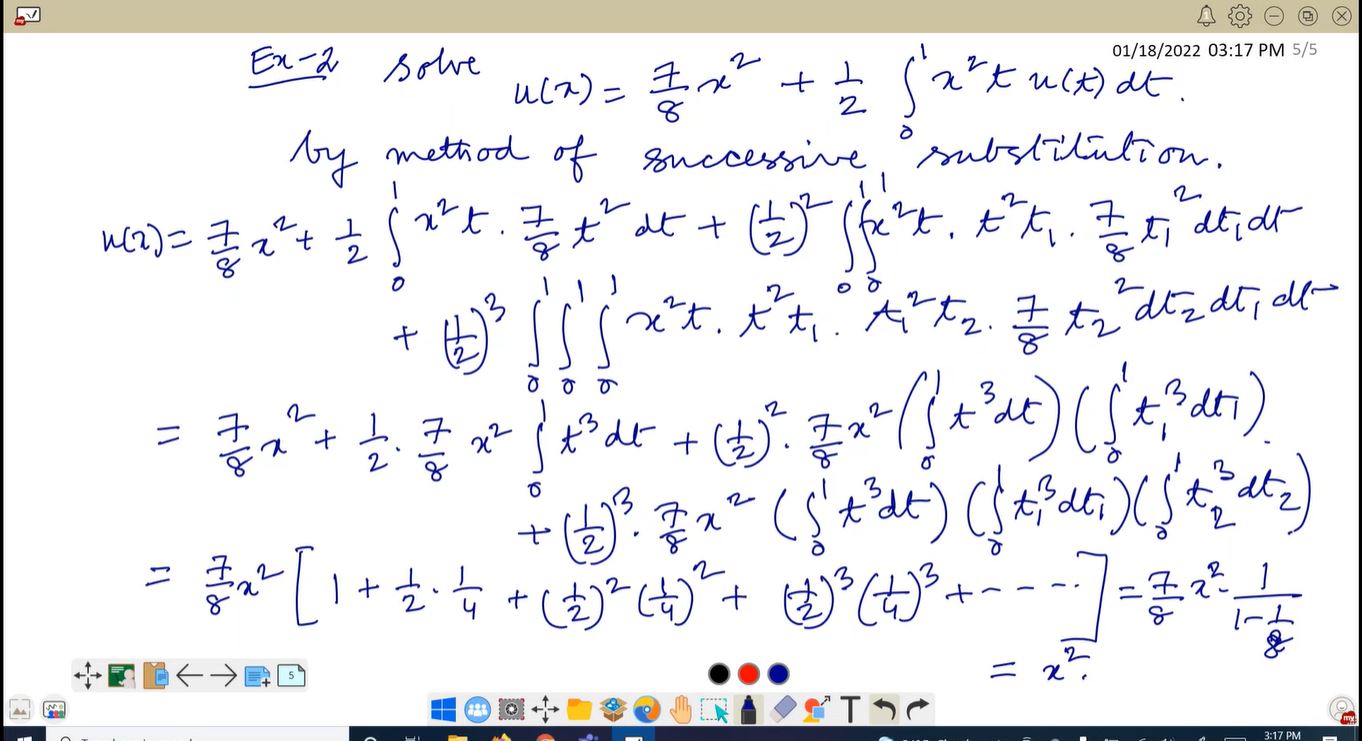 01/18/2022 03:17 PM 5/5
Ex-2 solve u(x) = 7/8 x² + 1/2 ∫₀¹ x²t u(t) dt.
by method of successive substitution.
u(x) = 7/8 x² + 1/2 ∫₀¹ x²t. 7/8 t² dt + (1/2)² ∫₀¹∫₀¹ x²t. t²t₁. 7/8 t₁² dt₁dt
+ (1/2)³ ∫₀¹∫₀¹∫₀¹ x²t. t²t₁. t₁²t₂. 7/8 t₂² dt₂ dt₁ dt
= 7/8 x² + 1/2. 7/8 x² ∫₀¹ t³ dt + (1/2)². 7/8 x² (∫₀¹ t³dt) (∫₀¹ t₁³dt₁).
+ (1/2)³. 7/8 x² (∫₀¹ t³dt) (∫₀¹ t₁³dt₁) (∫₀¹ t₂³dt₂)
= 7/8 x² [1 + 1/2. 1/4 + (1/2)² (1/4)² + (1/2)³ (1/4)³ + - - - ..] = 7/8 x². 1/(1-1/8)
= x².
5
T
3:17 PM